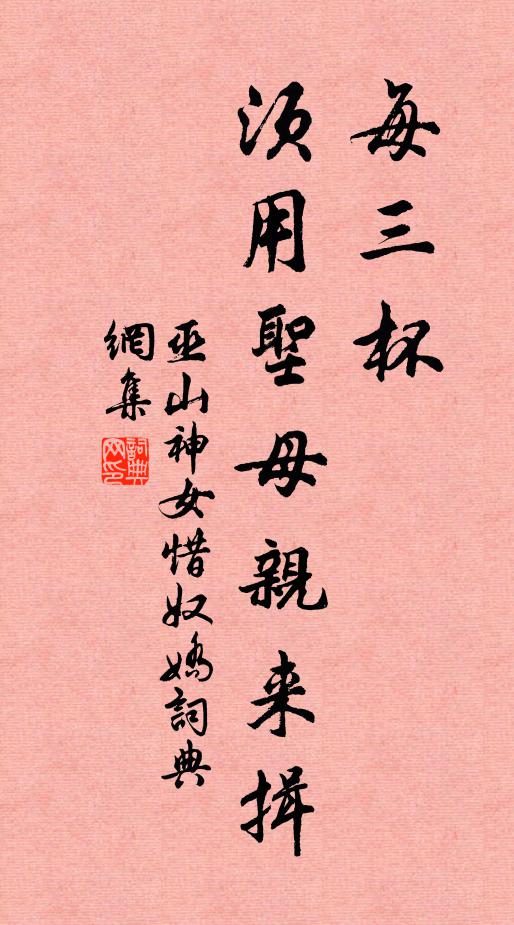 每三杯
須用聖母親来揖
巫山神女惜奴嬌詞典
網集
詞典网印